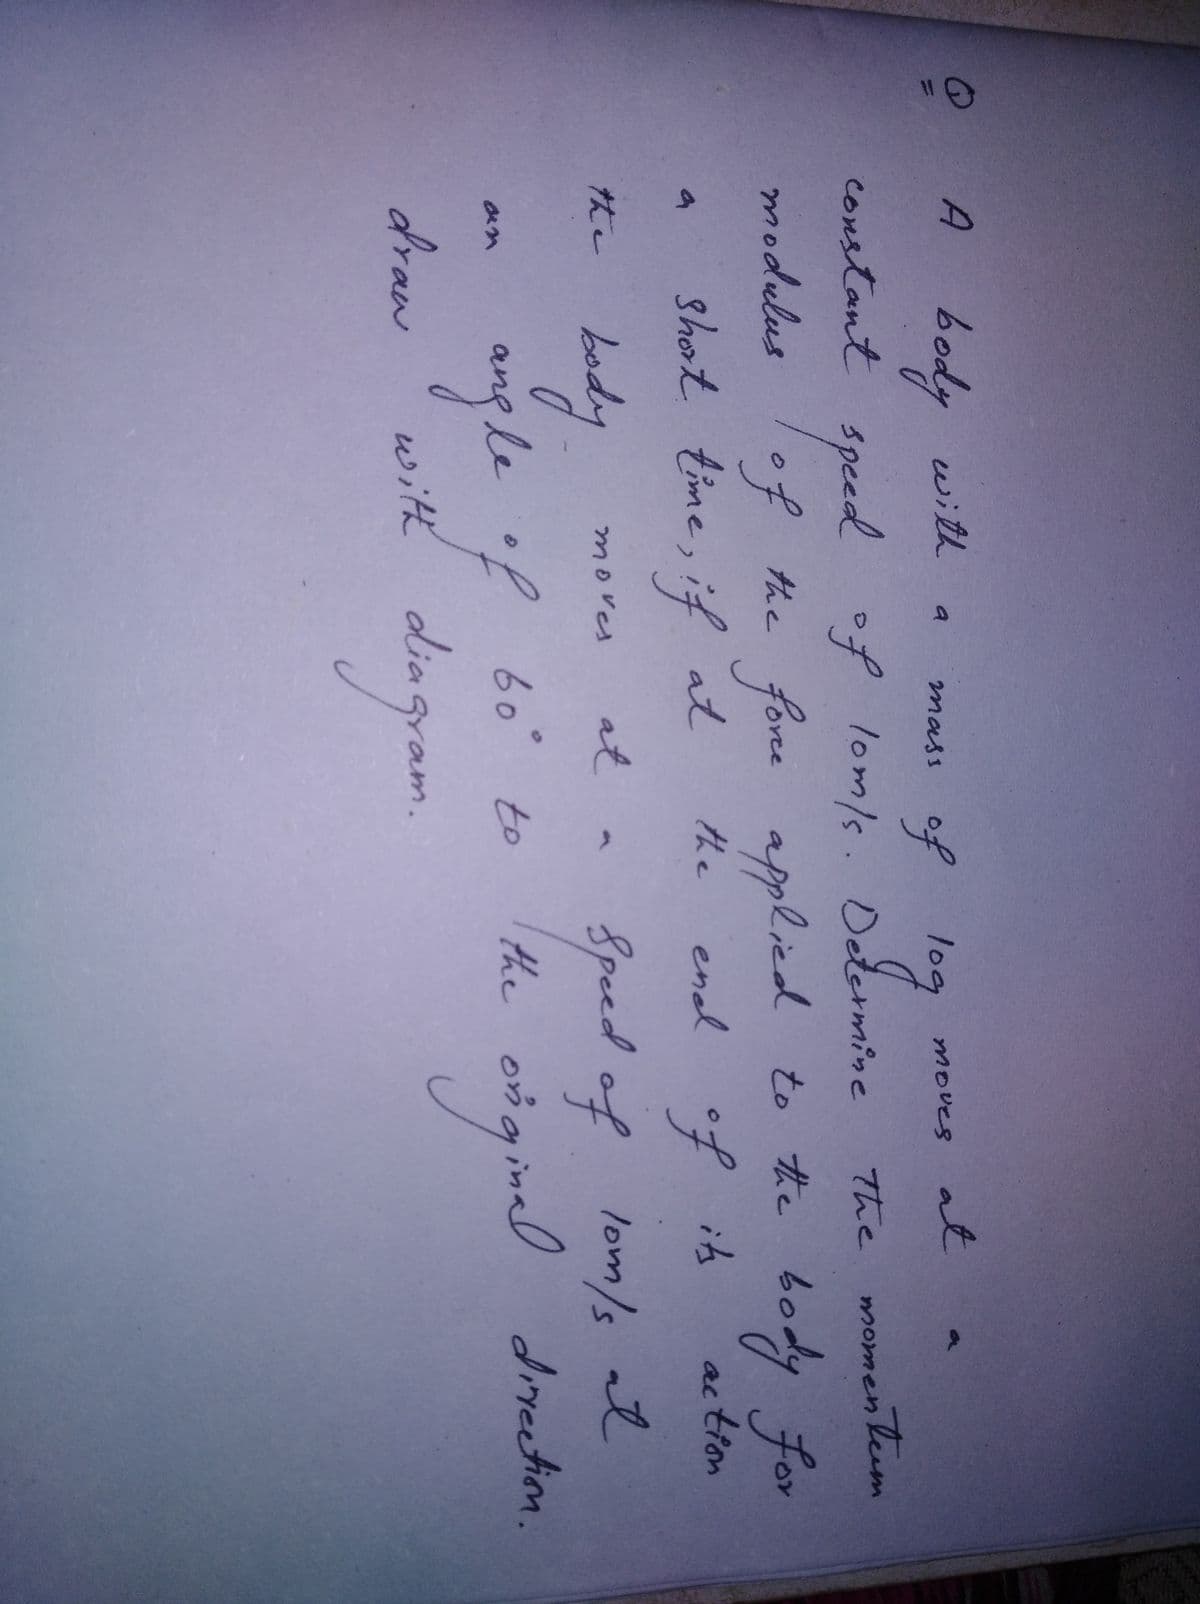 ① A body with a mass of 10g moves at a
constant speed of 10m/s. Determine The momentum
modulus of the force applied to the body for
a short time, if at the end of its action
the body moves at a speed of 10m/s at
an angle of 60° to the original direction.
draw with diagram.